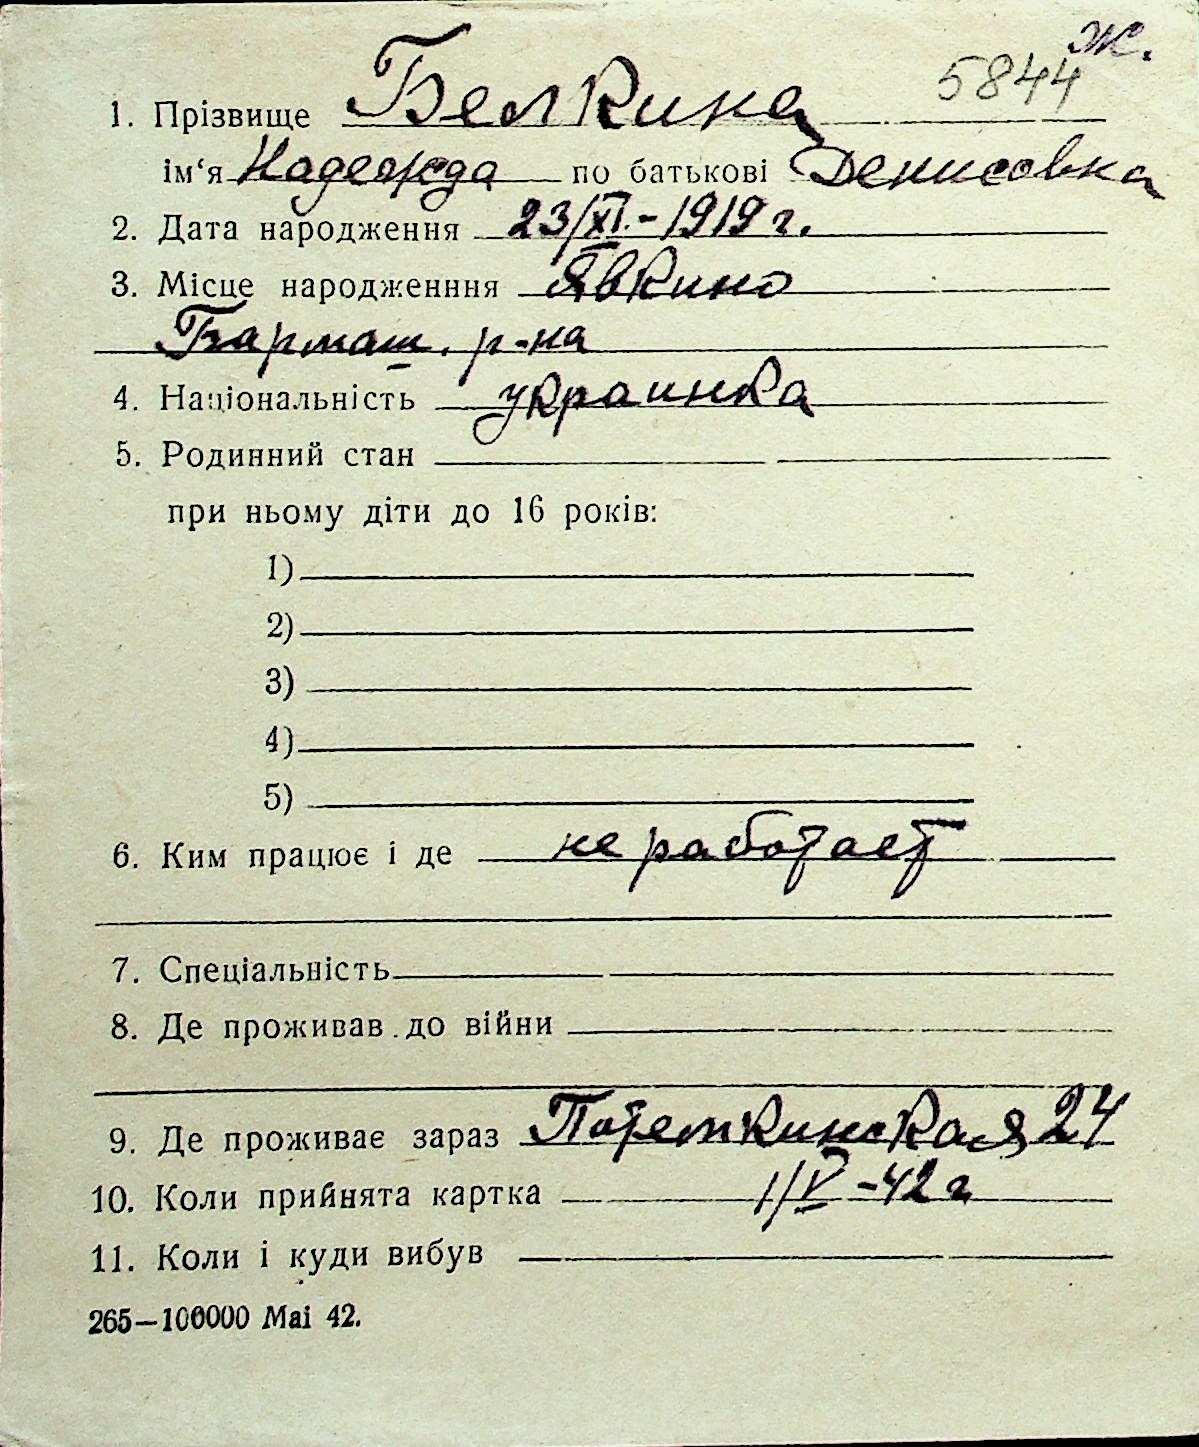 ж.
5844
1. Прізвище Белкина
ім‘я Надежда по батькові Денисовна
2. Дата народження 23/XI.-1919 г.
3. Місце народженння Явкино
Бармаш. р-на
4. Національність украинка
5. Родинний стан
при ньому діти до 16 років:
1)
2)
3)
4)
5)
6. Ким працює і де не работает
7. Спеціальність
8. Де проживав до війни
9. Де проживає зараз Потемкинская 24
10. Коли прийнята картка 1/V-42 г
11. Коли і куди вибув
265—100000 Mai 42.